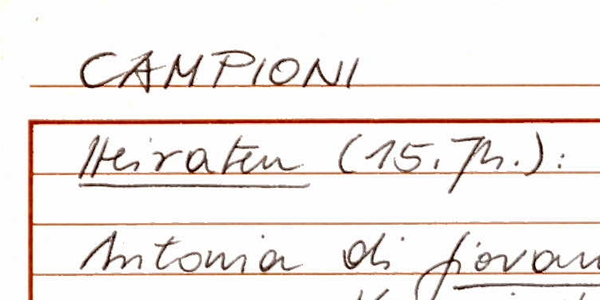 CAMPIONI
Heiraten (15. Jh.):
Antonia di